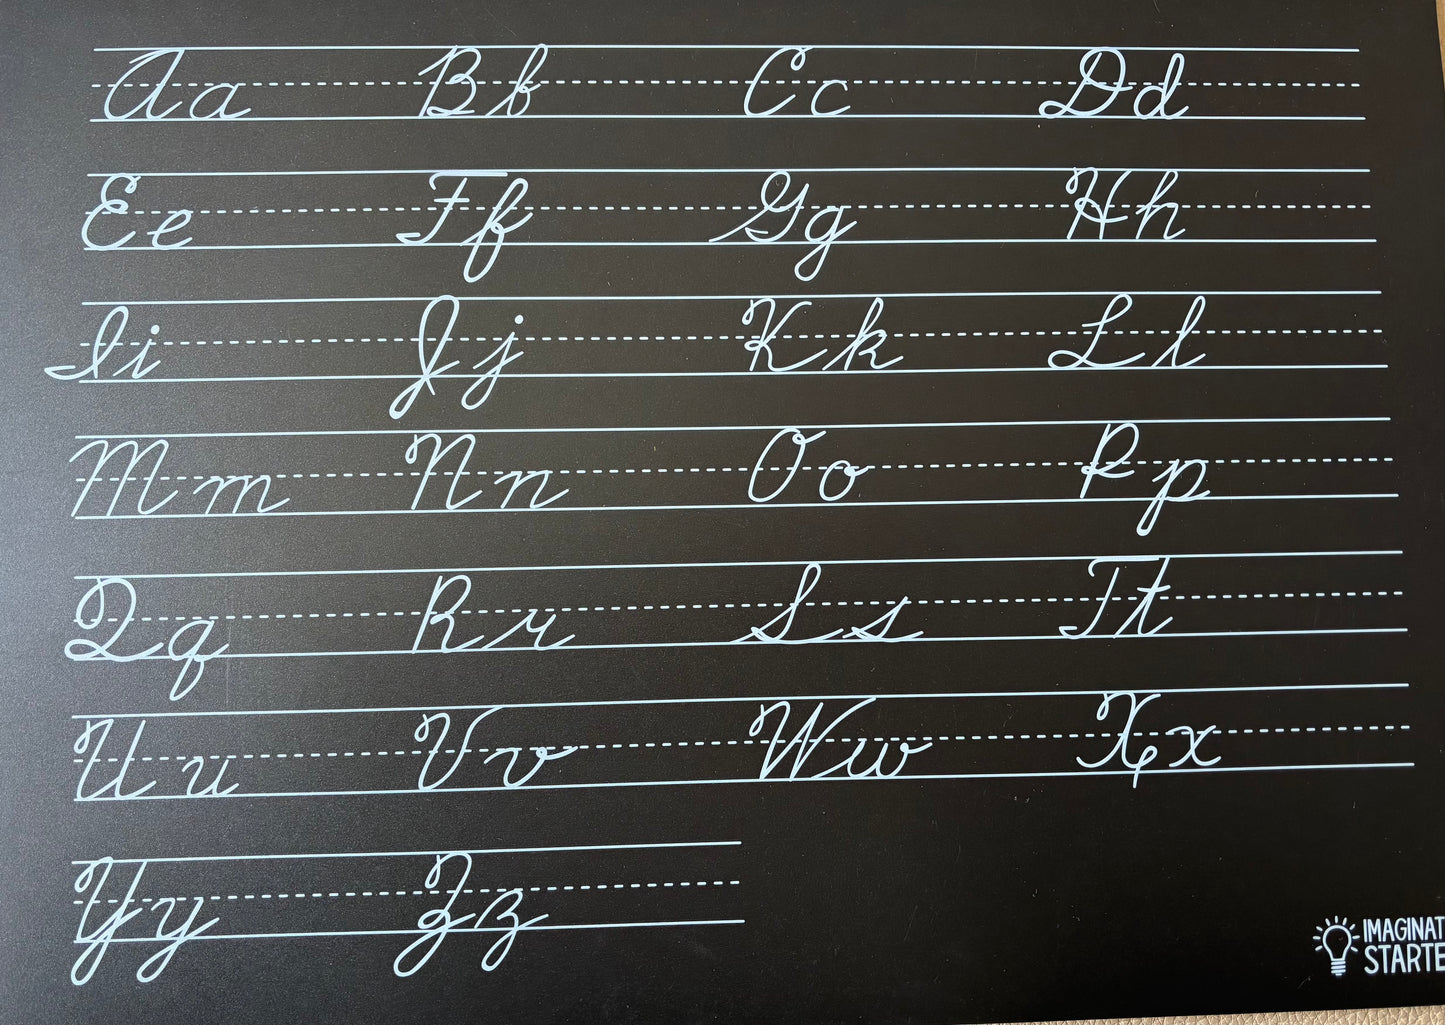 Aa Bb Cc Dd
Ee Ff Gg Hh
Ii Jj Kk Ll
Mm Nn Oo Pp
Qq Rr Ss Tt
Uu Vv Ww Xx
Yy Zz
IMAGINAT
STARTE